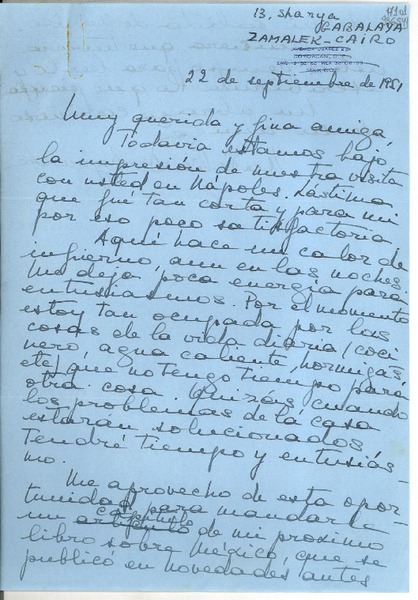 13, Sharya
GABALAYA
ZAMALEK-CAIRO
22 de septiembre de 1951
Muy querida y fina amiga,
Todavía estamos bajo
la impresión de nuestra visita
con usted en Napoles. Lástima
que fué tan corta y para mi
por eso poco satisfactoria.
Aquí hace un calor de
infierno aun en las noches.
Me deja poca energía para
entusiasmos. Por el momento
estoy tan ocupada por las
cosas de la vida diaria (coci
nero, agua caliente, hormigas,
etc) que no tengo tiempo para
otra cosa. Quizás cuando
los problemas de la casa
estarán solucionados
Tendré tiempo y entusiás-
mo.
Me aprovecho de esta opor-
tunidad para mandarle
un capítulo de mi proximo
libro sobre México, que se
publicó en novedades antes